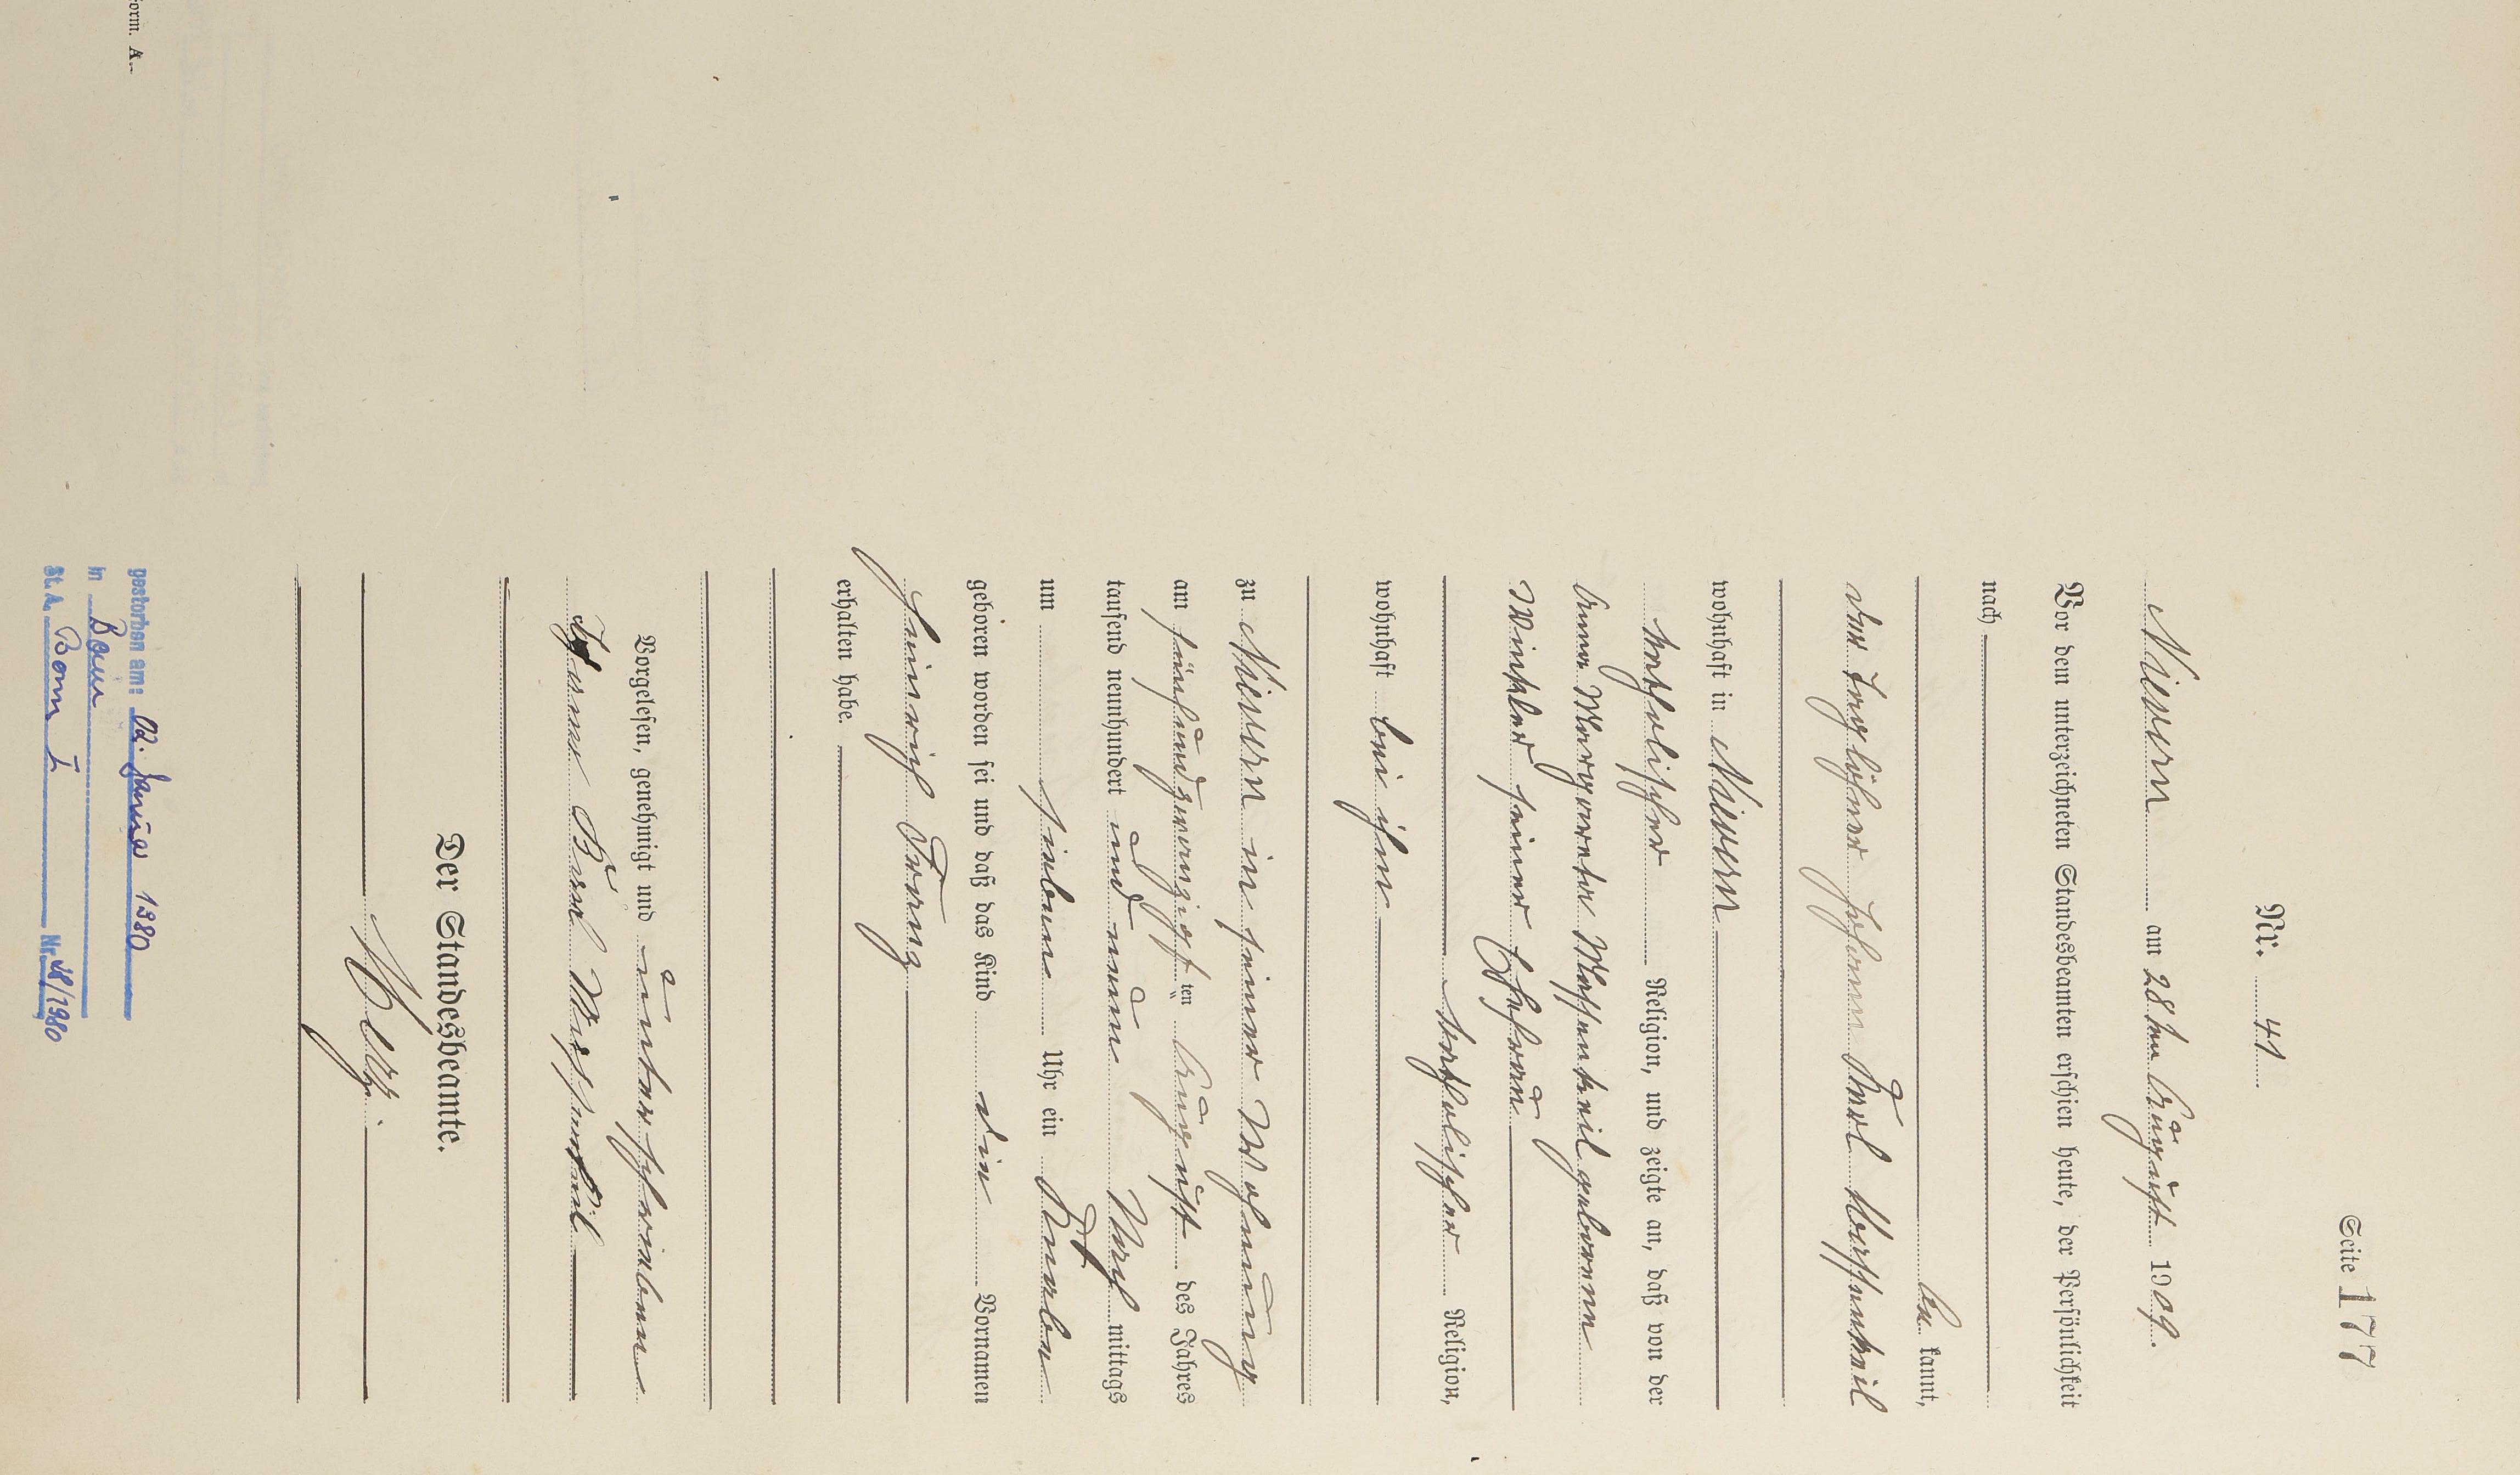 Seite 177
Nr. 41
Nievern am 28ten August 1909.
Vor dem unterzeichneten Standesbeamten erschien heute, der Persönlichkeit
nach
be kannt,
der Taglöhner Johann Karl
wohnhaft in Nievern
katholischer Religion, und zeigte an, daß von der
Anna Margareta geborenen
Winkler seiner Ehefrau
katholischer Religion,
wohnhaft bei ihm
zu Nievern in seiner Wohnung
am fünfundzwanzigsten August des Jahres
tausend neunhundert und neun Nach mittags
um sieben Uhr ein Knabe
geboren worden sei und daß das Kind die Vornamen
Heinrich Franz
erhalten habe.
Vorgelesen, genehmigt und unterschrieben
Johann Karl
Der Standesbeamte.
gestorben am: 02. Januar 1980
in Bonn
St. A. Bonn I Nr. 48/1980
Form. A.